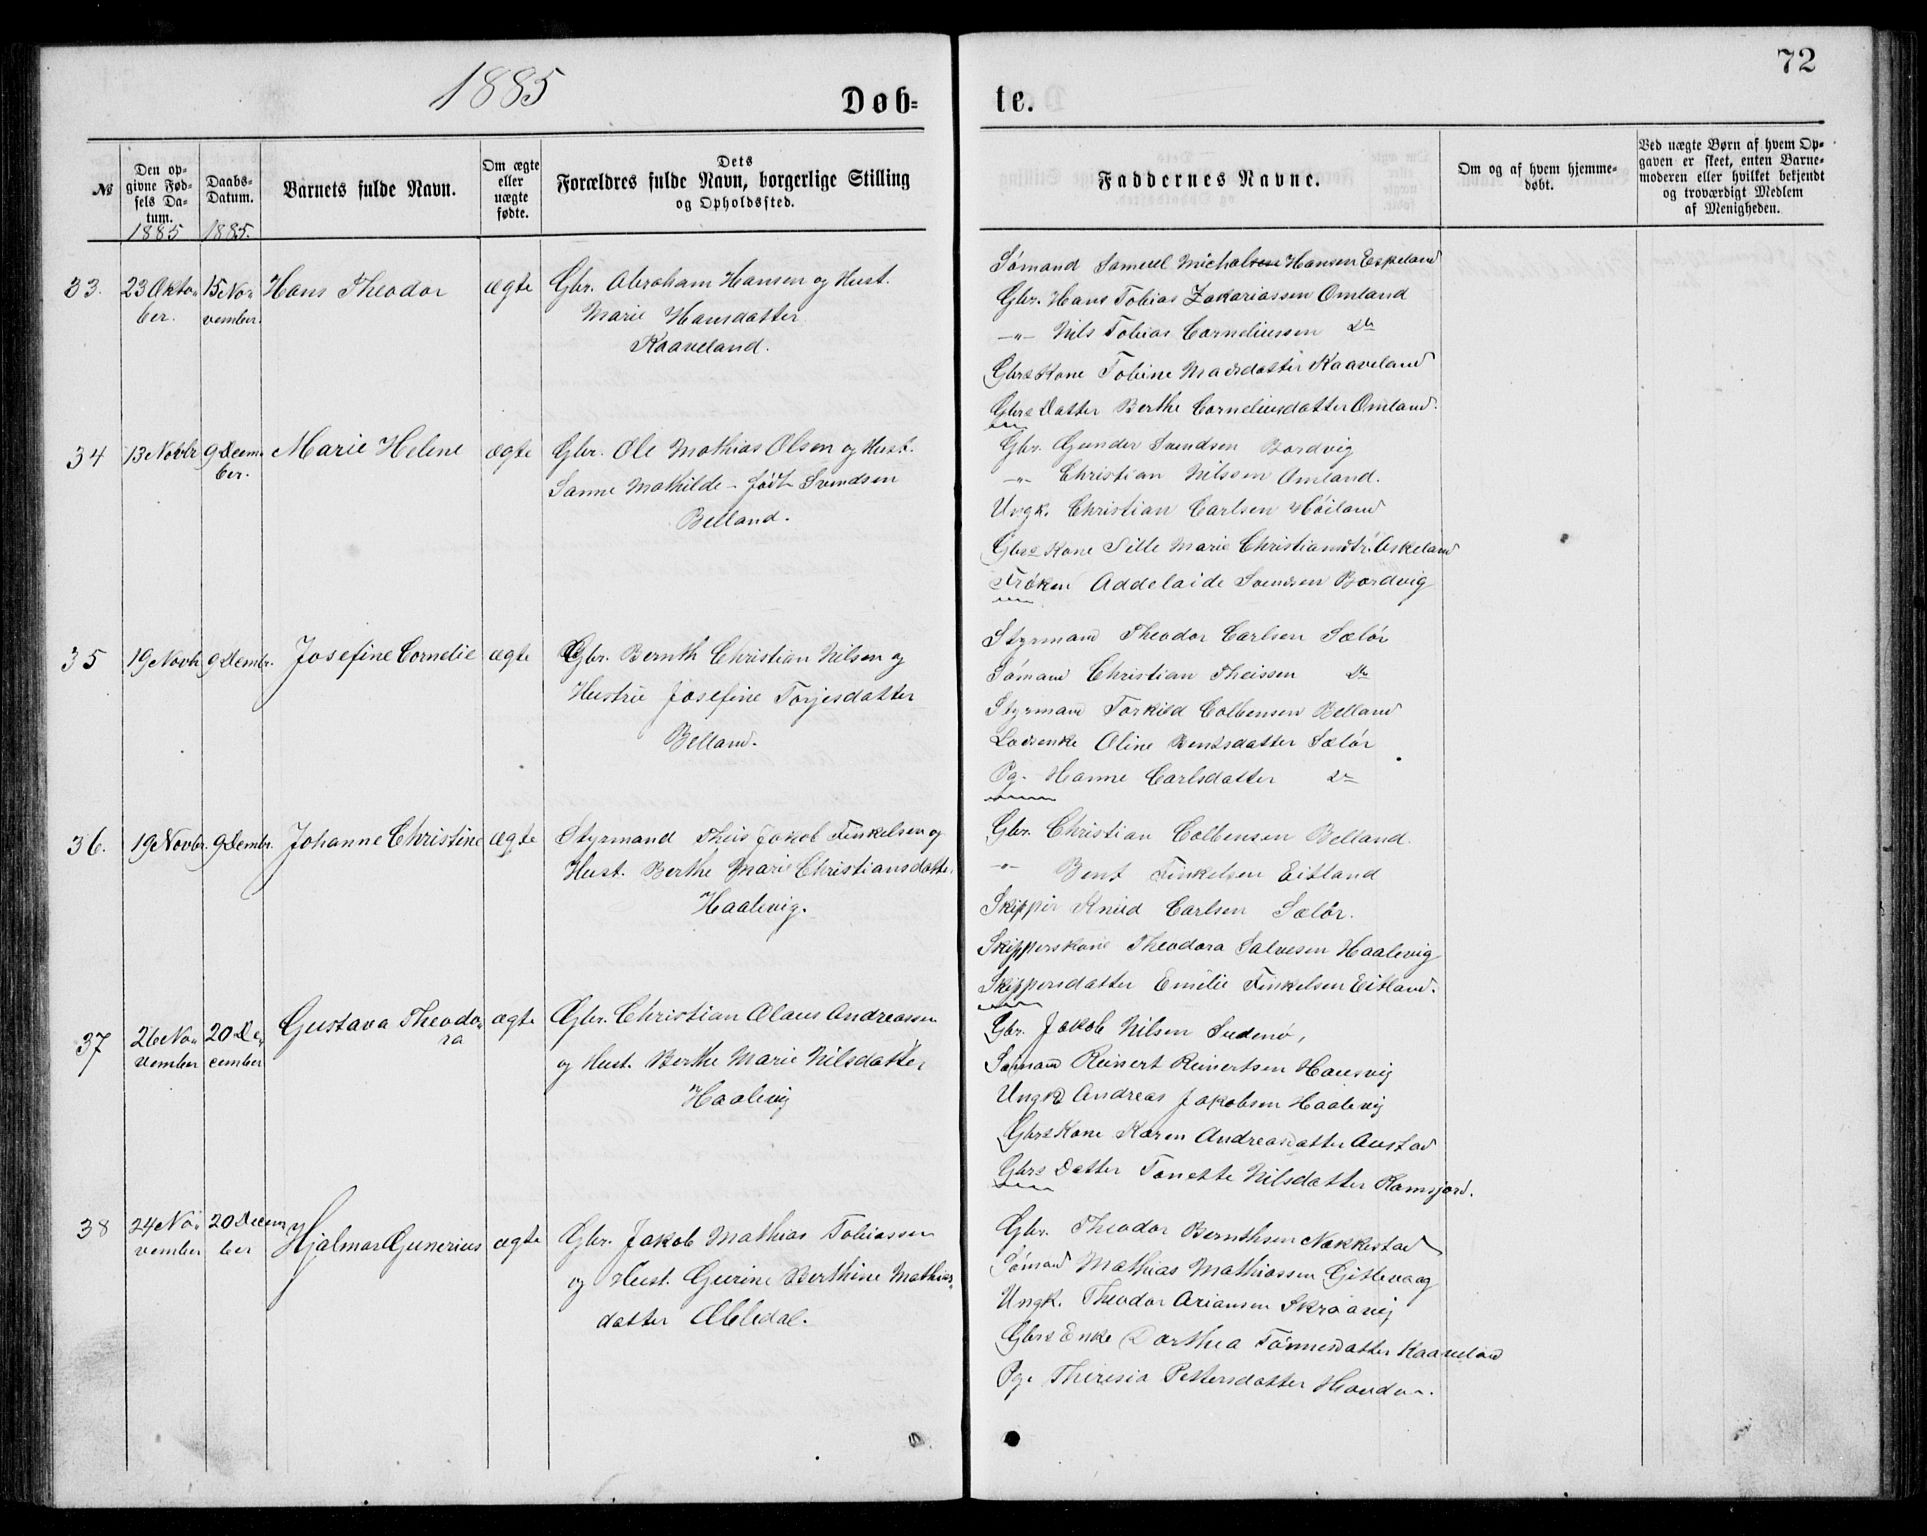 1885
Døb-
te.
72
№
Den op-
givne Fød-
sels Da-
tum.
1885
Daabs-
Datum.
1885.
Barnets fulde Navn.
Om ægte
eller
uægte
fødte.
Dets
Forældres fulde Navn, borgerlige Stilling
og Opholdssted.
Faddernes Navne.
Om og af hvem hjemme-
døbt.
Ved uægte Børn af hvem Op-
gaven er skeet, enten Barne-
moderen eller hvilket bekjendt
og troværdigt Medlem
af Menigheden.
33.
23 Okto-
ber.
15 No-
vember.
Hans Theodor
ægte
Gbr. Abraham Hansen og Hust.
Marie Hansdatter
Kaaveland.
Sømand Samuel Hansen Eskeland
Gbr. Hans Tobias Zakariassen Omland
-"- Nils Tobias Corneliussen Do
Gbrs Kone Tobine Madsdatter Kaaveland
Gbrs Datter Berthe Corneliusdatter Omland.
34
13 Novbr
9 Decem
ber.
Marie Helene
ægte
Gbr. Ole Mathias Olsen og Hust.
Sanne Mathilde - født Svendsen
Belland.
Gbr. Gunder Svendsen Bordvig
-"- Christian Nilssen Omland.
Ungk. Christian Carlsen Høiland
Gbrs Kone Sille Marie Christiansdtr. Askeland
Frøken Addelaide Svendsen Bordvig
35
19 Novbr
9 Decmbr.
Josefine Cornelie
ægte
Gbr. Bernth Christian Nilsen og
Hustru Josefine Torjesdatter
Belland.
Styrmand Theodor Carlsen Sælør
Sømand Christian Theissen Do
Styrmand Torkild Colbensen Belland
Lodsenke Oline Bentsdatter Sælør
Pg. Hanne Carlsdatter Do
36.
19 Novbr.
9 Decmbr.
Johanne Christine
ægte
Styrmand Theis Jakob Finkelsen og
Hust. Berthe Marie Christiansdatter
Haalevig.
Gbr. Christian Colbensen Belland.
-"- Bent Finkelsen Eitland
Skipper Knud Carlsen Sælør.
Skipperskone Theodora Salvesen Haalevig
Skippersdatter Emilie Finkelsen Eitland.
37
26 No-
vember
20 De-
cember
Gustava Theodo-
ra
ægte
Gbr. Christian Olaus Andreassen
og Hust. Berthe Marie Nilsdatter
Haalevig
Gbr. Jakob Nilsen Sudenø,
Sømand Reinert Reinertsen Hausvig
Ungk Andreas Jakobsen Haalevig
Gbrs Kone Karen Andreasdatter Austad
Gbrs Datter Tonette Nilsdatter Ramsjord.
38
24 No-
vember
20 Decem
ber
Hjalmar Gunerius
ægte
Gbr. Jakob Mathias Tobiassen
og Hust. Gurine Berthine Mathias-
datter Æbledal.
Gbr. Theodor Bernthsen Nøkkestad
Sømand Mathias Mathiassen Gitlevaag
Ungk. Theodor Ariansen Skraavig
Gbrs Enke Dorthea Tønnesdatter Kaaveland
Pg. Theresia Pettersdatter